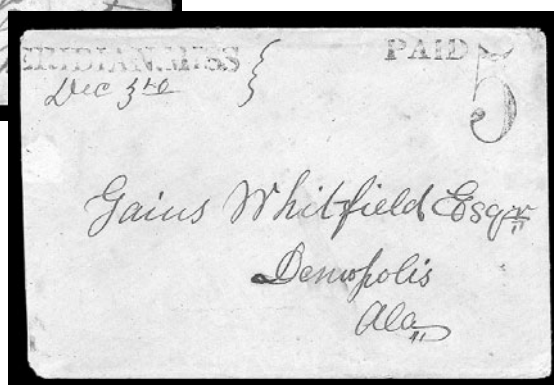 ERIDIAN.MISS PAID 5
Dec 3rd
Gaius Whitfield Esqr
Demopolis
Ala